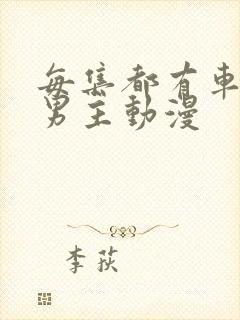 每集都有車
男主動漫
李荻